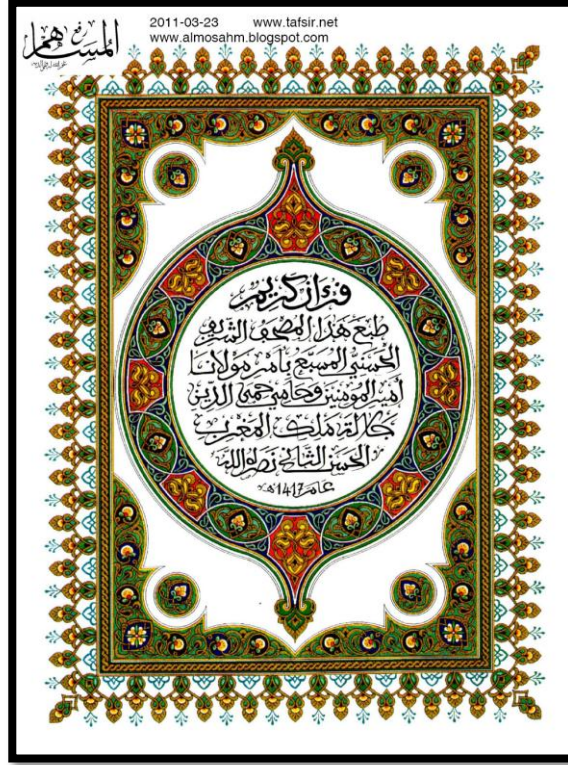 2011-03-23 www.tafsir.net
www.almosahm.blogspot.com
رفع
المساهم
قرءان كريم
طبع هذا المصحف الشريف
الحسني المسبع بأمر مولانا
أمير المومنين وحامي حمى الدين
جلالة ملك المغرب
الحسن الثاني نصره الله
عام 1417هـ